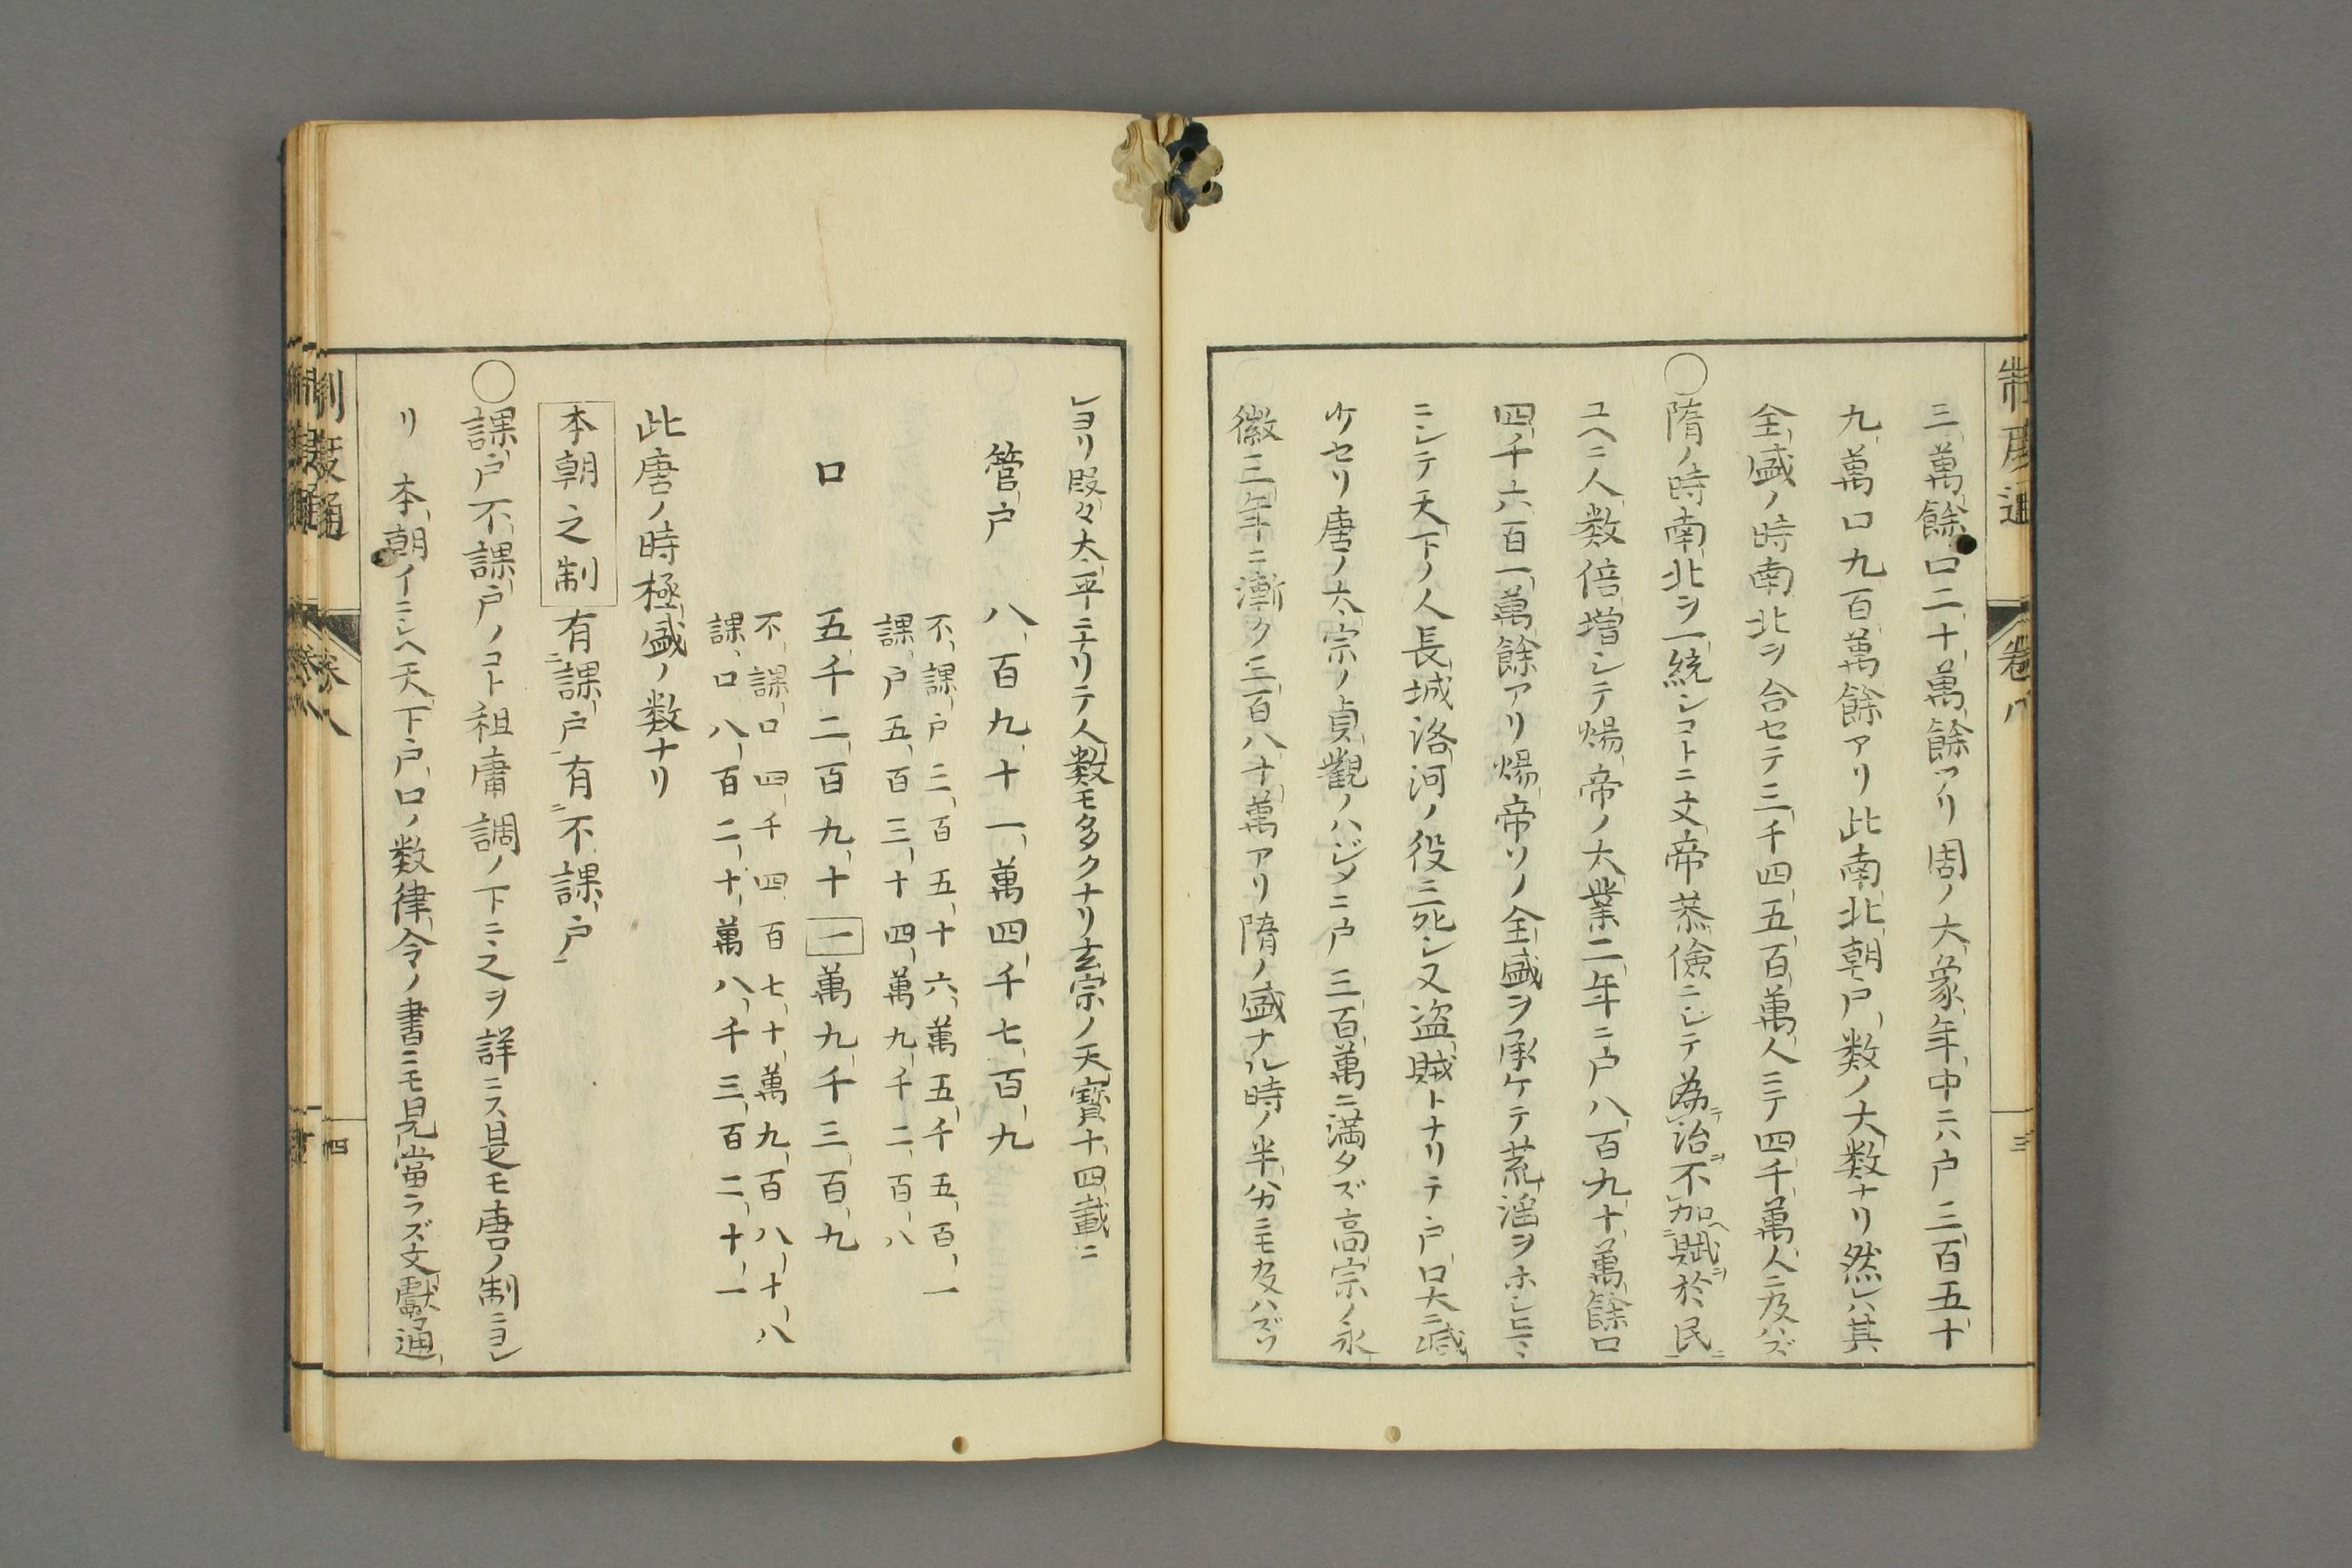 三萬餘口二十萬餘アリ周ノ大象年中ニハ戸三百五十
九萬口九百萬餘アリ此南北朝戸数ノ大数ナリ然レハ其
全盛ノ時南北ヲ合セテ三千四五百萬人ニテ四千萬人ニ及ハズ
〇隋ノ時南北ヲ一統シコトニ文帝恭儉ニシテ為治不加賦於民
ユヘニ人数倍増シテ煬帝ノ大業二年ニ戸八百九十萬餘口
四千六百一萬餘アリ煬帝ソノ全盛ヲ承ケテ荒淫ヲホシヒマヽ
ニシテ天下ノ人長城洛河ノ役ニ死シ又盗賊トナリテ戸口大ニ減
少セリ唐ノ太宗ノ貞觀ノハジメニ戸三百萬ニ満タズ高宗ノ永
徽三年ニ漸ク三百八十萬アリ隋ノ盛ナル時ノ半分ニモ及ハズソ
制度通 卷八 三
レヨリ段々太平ニナリテ人数モ多クナリ玄宗ノ天寶十四載ニ
管戸 八百九十一萬四千七百九
不課戸三百五十六萬五千五百一
課戸五百三十四萬九千二百八
口 五千二百九十一萬九千三百九
不課口四千四百七十萬九百八十八
課口八百二十萬八千三百二十一
此唐ノ時極盛ノ数ナリ
本朝之制 有課戸有不課戸
〇課戸不課戸ノコト租庸調ノ下ニ之ヲ詳ニス是モ唐ノ制ニヨレ
リ 本朝イニシヘ天下戸口ノ数律令ノ書ニモ見當ラズ文獻通
制度通 卷八 四